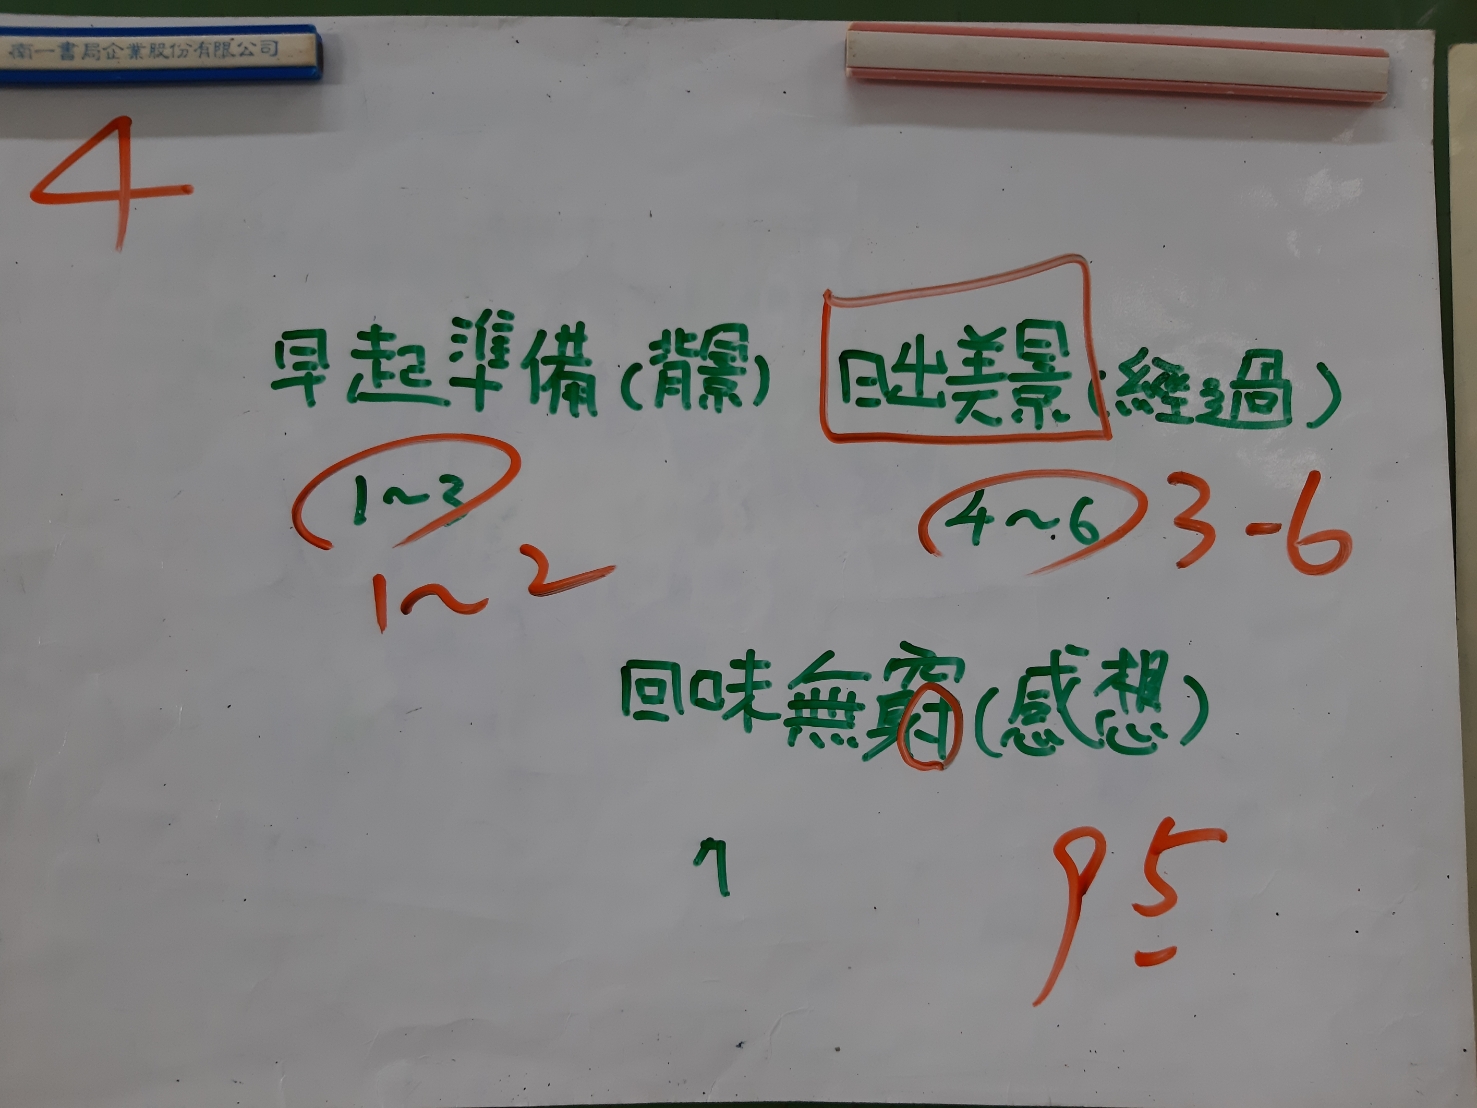 南一書局企業股份有限公司
4
早起準備(背景) 日出美景(經過)
1~3 4~6 3-6
1~2
回味無窮(感想)
7 95